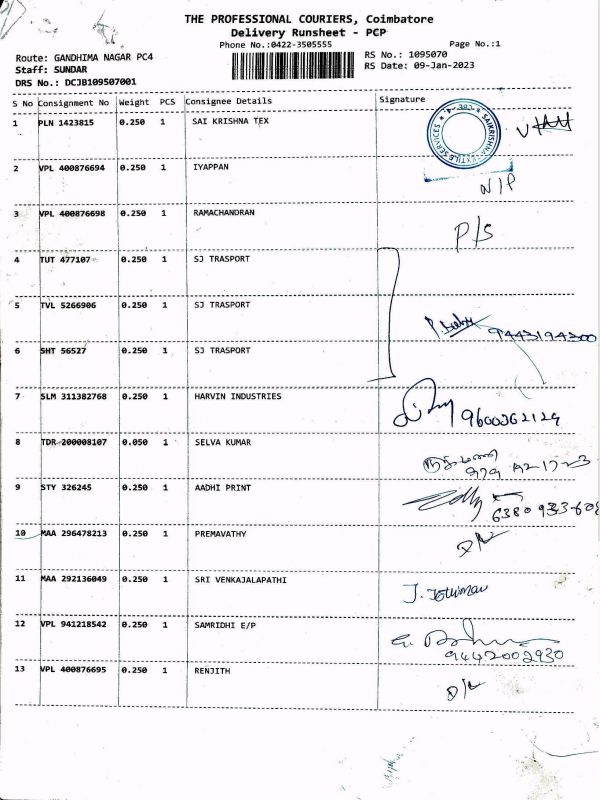 THE PROFESSIONAL COURIERS, Coimbatore
Delivery Runsheet - PCP
Phone No.:0422-3505555
Page No.:1
Route: GANDHIMA NAGAR PC4
RS No.: 1095070
Staff: SUNDAR
RS Date: 09-Jan-2023
DRS No.: DCJB109507001
S No Consignment No Weight PCS Consignee Details Signature
1 PLN 1423815 0.250 1 SAI KRISHNA TEX
SAIKRISHNA TEXTILE SERVICES * CBE *
2 VPL 400876694 0.250 1 IYAPPAN N/P
3 VPL 400876698 0.250 1 RAMACHANDRAN P/S
4 TUT 477107 0.250 1 SJ TRASPORT
5 TVL 5266906 0.250 1 SJ TRASPORT 9443194300
6 SHT 56527 0.250 1 SJ TRASPORT
7 SLM 311382768 0.250 1 HARVIN INDUSTRIES 9600362124
8 TDR 200008107 0.050 1 SELVA KUMAR
9 STY 326245 0.250 1 AADHI PRINT
10 MAA 296478213 0.250 1 PREMAVATHY D/L
11 MAA 292136049 0.250 1 SRI VENKAJALAPATHI
12 VPL 941218542 0.250 1 SAMRIDHI E/P 9442002930
13 VPL 400876695 0.250 1 RENJITH D/L